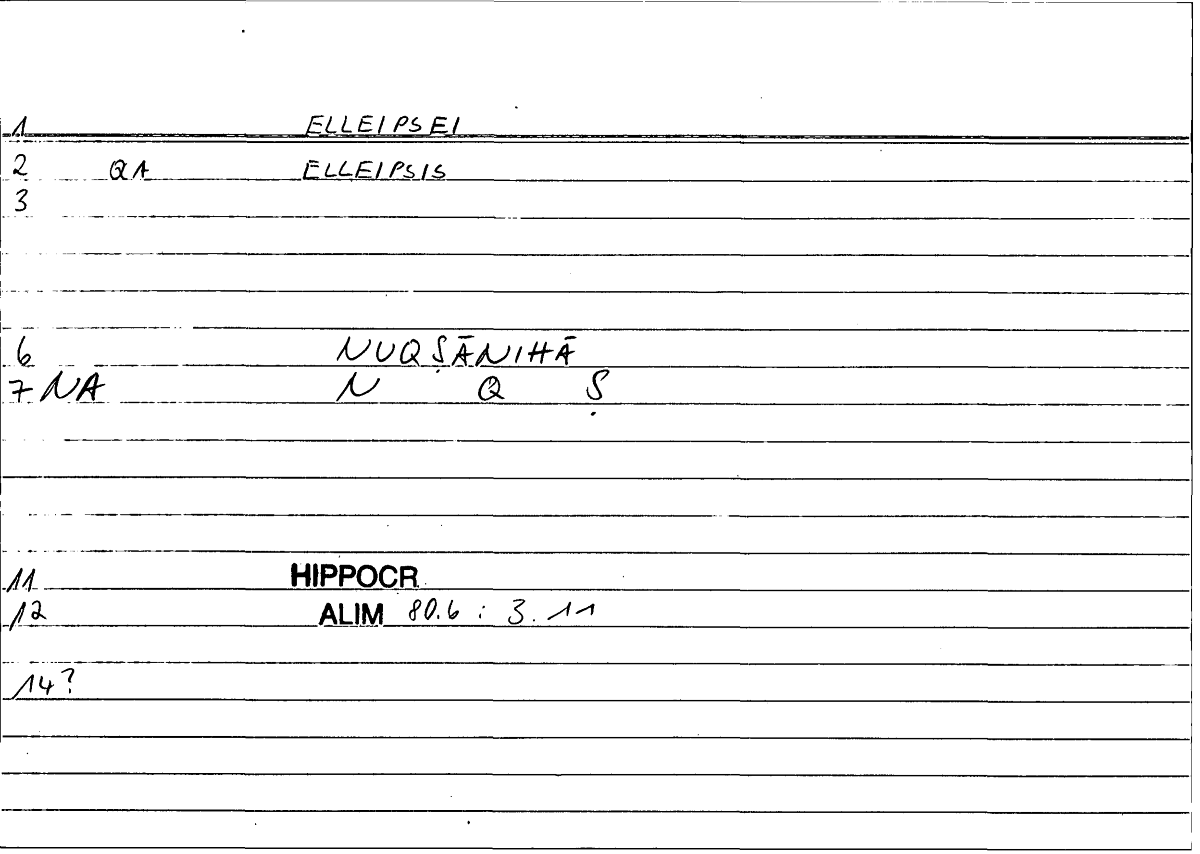 1 ELLEIPSEI
2 QA ELLEIPSIS
3
6 NUQṢĀNIHĀ
7 NA N Q Ṣ
11 HIPPOCR
12 ALIM 80.6 : 3.11
14?